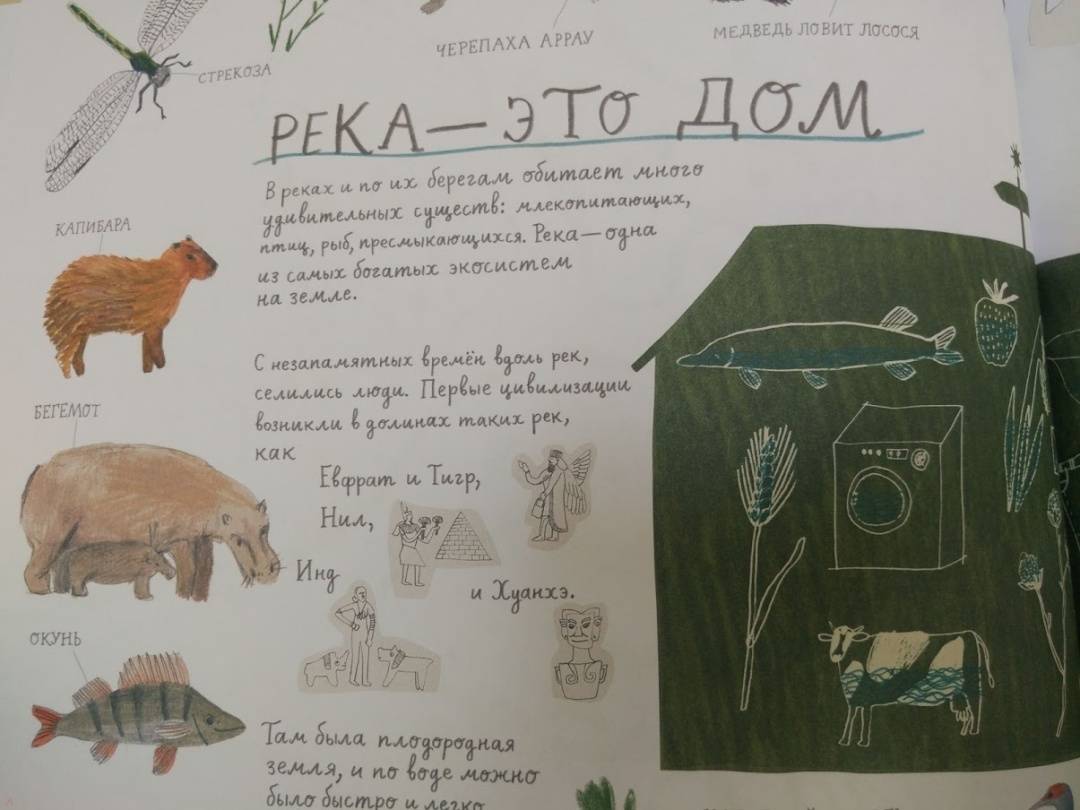 ЧЕРЕПАХА АРРАУ
МЕДВЕДЬ ЛОВИТ ЛОСОСЯ
СТРЕКОЗА
РЕКА — ЭТО ДОМ
В реках и по их берегам обитает много
удивительных существ: млекопитающих,
птиц, рыб, пресмыкающихся. Река — одна
из самых богатых экосистем
на земле.
КАПИБАРА
С незапамятных времён вдоль рек,
селились люди. Первые цивилизации
возникли в долинах таких рек,
как
БЕГЕМОТ
Евфрат и Тигр,
Нил,
Инд
и Хуанхэ.
ОКУНЬ
Там была плодородная
земля, и по воде можно
было быстро и легко